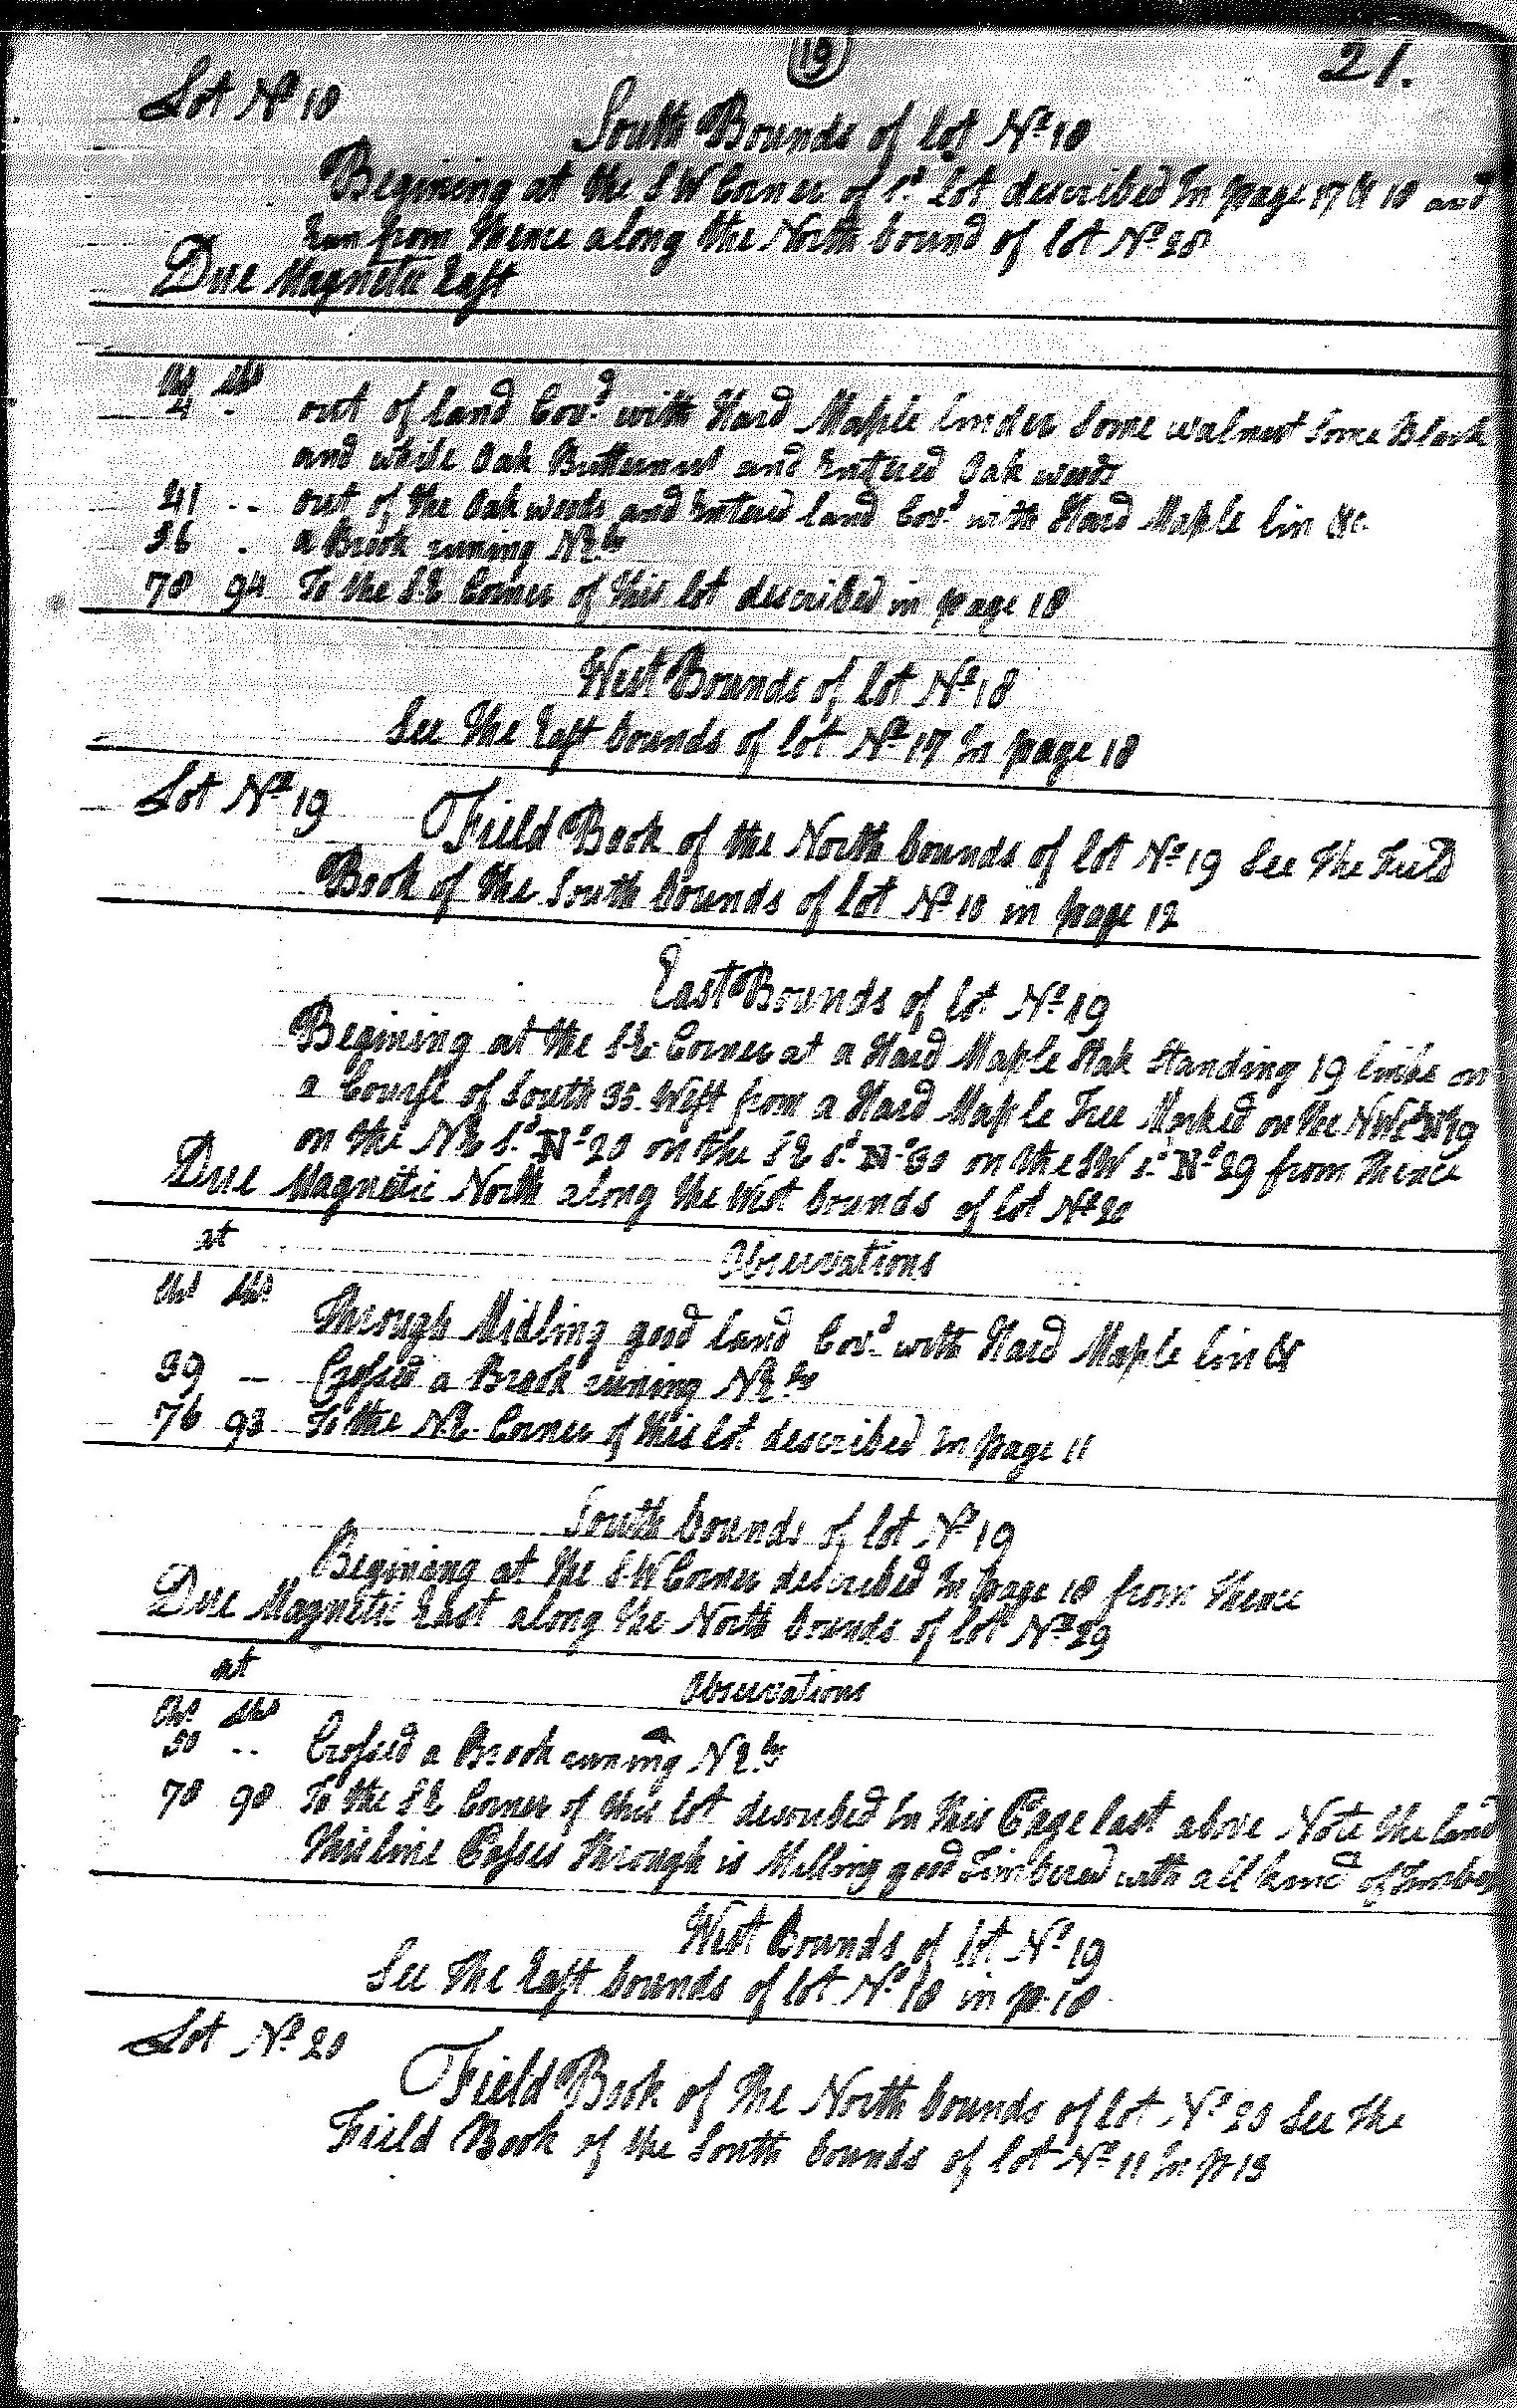 19
21.
Lot No 18
South Bounds of lot No 18
Begining at the SW Corner of sd lot described In page 17 & 18 and
Run from thence along the North bound of lot No 28
Due Magnetic East
Chs Lks
4 - out of land Covd with Hard Maple linden Some walnut Some Black
and while Oak Butternut and Entered Oak woods
41 -- out of the Oak woods and Entered land Covd with Hard Maple lin &c
56 . a Brook runing NEly
78 94 To the SE Corner of this lot described in page 18
West Bounds of lot No 18
See The East bounds of lot No 17 In page 18
Lot No 19
Field Book of the North bounds of lot No 19 See The Field
Book of the South bounds of lot No 10 in page 12
East Bounds of lot No 19
Begining at the SE Corner at a Hard Maple Stak Standing 19 links on
a Course of South 35 West from a Hard Maple Tree Marked on the NW Sd No 19
on the NE Sd No 20 on the SE Sd No 30 on the SW Sd No 29 from thence
Due Magnetic North along the West bounds of lot No 20
at Observations
Chs Lks
Through Midling good land Covd with Hard Maple lin &
39 - Crossed a Brook runing NEly
76 93 To the NE Corner of this lot described In page 11
South bounds of lot No 19
Begining at the SW Corner described In page 18 from thence
Due Magnetic East along the North bounds of lot No 29
at Observations
Chs Lks
50 .. Crossed a Brook runing NEly
78 90 To the SE Corner of this lot described In this Page last above Note the land
this line Passes through is Midling good Timbered with all kind of Timber
West Bounds of lot No 19
See The East bounds of lot No 18 in p. 18
Lot No 20
Field Book of the North bounds of lot No 20 See the
Field Book of the South bounds of lot No 11 In p 13